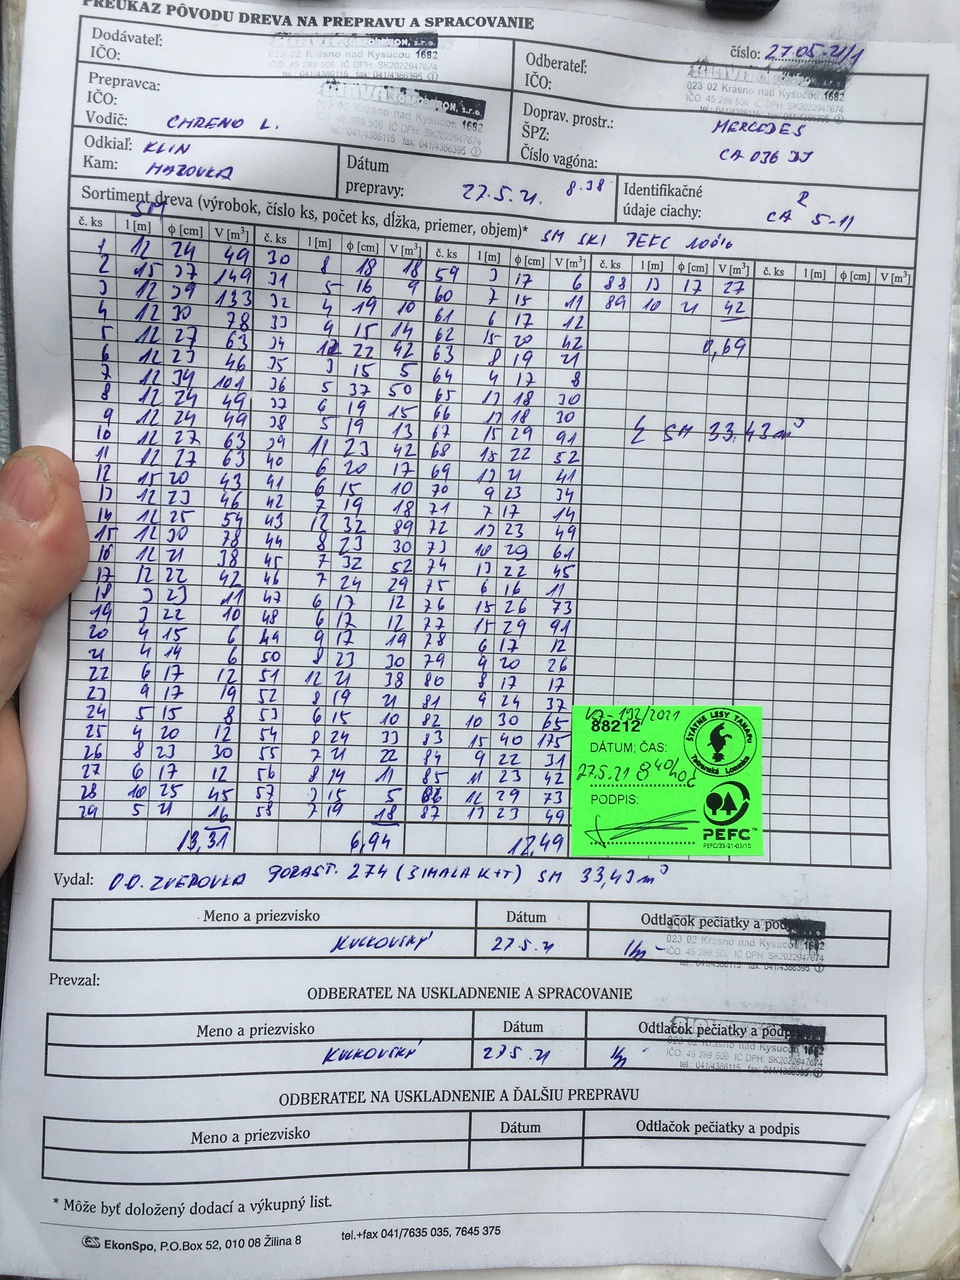 PREUKAZ PÔVODU DREVA NA PREPRAVU A SPRACOVANIE
číslo: 27.05-21/1
Dodávateľ:
IČO:
023 02 Krásno nad Kysucou 1682
IČO 45 289 506 IČ DPH: SK2022947674
tel. 041/4386115 fax: 041/4386395
Odberateľ:
IČO:
023 02 Krásno nad Kysucou 1682
Prepravca:
IČO:
Vodič: CHRENO L.
Doprav. prostr.: MERCEDES
ŠPZ: CA 036 DJ
Číslo vagóna:
Odkiaľ: KLIN
Kam: HAZOVKA
Dátum
prepravy: 27.5.21 8.38
Identifikačné
údaje ciachy: CA 5-11
Sortiment dreva (výrobok, číslo ks, počet ks, dĺžka, priemer, objem)* SM SKI PEFC 100%
SM
č. ks l [m] ϕ [cm] V [m³] č. ks l [m] ϕ [cm] V [m³] č. ks l [m] ϕ [cm] V [m³] č. ks l [m] ϕ [cm] V [m³] č. ks l [m] ϕ [cm] V [m³]
1 12 24 49 30 8 18 18 59 3 17 6 88 13 17 27
2 15 37 149 31 5 16 9 60 7 15 11 89 10 21 42
3 12 39 133 32 4 19 10 61 6 17 12
4 12 30 78 33 9 15 14 62 15 20 42 0,69
5 12 27 63 34 12 22 42 63 8 19 21
6 12 23 46 35 3 15 5 64 4 17 8
7 12 34 101 36 5 37 50 65 13 18 30
8 12 24 49 37 6 19 15 66 13 18 30
9 12 24 49 38 5 19 13 67 15 29 91 Σ SM 33,43 m³
10 12 27 63 39 11 23 42 68 15 22 52
11 12 27 63 40 6 20 17 69 13 21 41
12 15 20 43 41 6 15 10 70 9 23 34
13 12 23 46 42 7 19 18 71 7 17 14
14 12 25 54 43 12 32 89 72 13 23 49
15 12 30 78 44 8 23 30 73 10 29 61
16 12 21 38 45 7 32 52 74 13 22 45
17 12 22 42 46 7 24 29 75 6 16 11
18 3 23 11 47 6 17 12 76 15 26 73
19 3 22 10 48 6 17 12 77 15 29 91
20 4 15 6 49 9 17 19 78 6 17 12
21 4 14 6 50 8 23 30 79 9 20 26
22 6 17 12 51 12 21 38 80 8 17 17
23 9 17 19 52 8 19 21 81 9 24 37
24 5 15 8 53 6 15 10 82 10 30 65
25 4 20 12 54 8 24 33 83 15 40 175
26 8 23 30 55 7 21 22 84 9 22 31
27 6 17 12 56 8 14 11 85 11 23 42
28 10 25 45 57 3 15 5 86 12 29 73
29 5 21 16 58 7 19 18 87 13 23 49
13,31 6,94 12,49
192/2021
88212
DÁTUM; ČAS:
27.5.21 8⁴⁰ hod
PODPIS:
ŠTÁTNE LESY TANAPU
Tatranská Lomnica
PEFC™
PEFC/23-21-03/10
Vydal: O.O. ZVEROVKA PORAST. 274 (SIHALA K+T) SM 33,43 m³
Meno a priezvisko Dátum Odtlačok pečiatky a podp
KUCKOVSKÝ 27.5.21
023 02 Krásno nad Kysucou 1682
IČO: 45 289 506 IČ DPH: SK2022947674
tel. 041/4386115 fax: 041/4386395
Prevzal:
ODBERATEĽ NA USKLADNENIE A SPRACOVANIE
Meno a priezvisko Dátum Odtlačok pečiatky a podp
KUCKOVSKÝ 27.5.21
ODBERATEĽ NA USKLADNENIE A ĎALŠIU PREPRAVU
Meno a priezvisko Dátum Odtlačok pečiatky a podpis
* Môže byť doložený dodací a výkupný list.
EkonSpo, P.O.Box 52, 010 08 Žilina 8 tel.+fax 041/7635 035, 7645 375